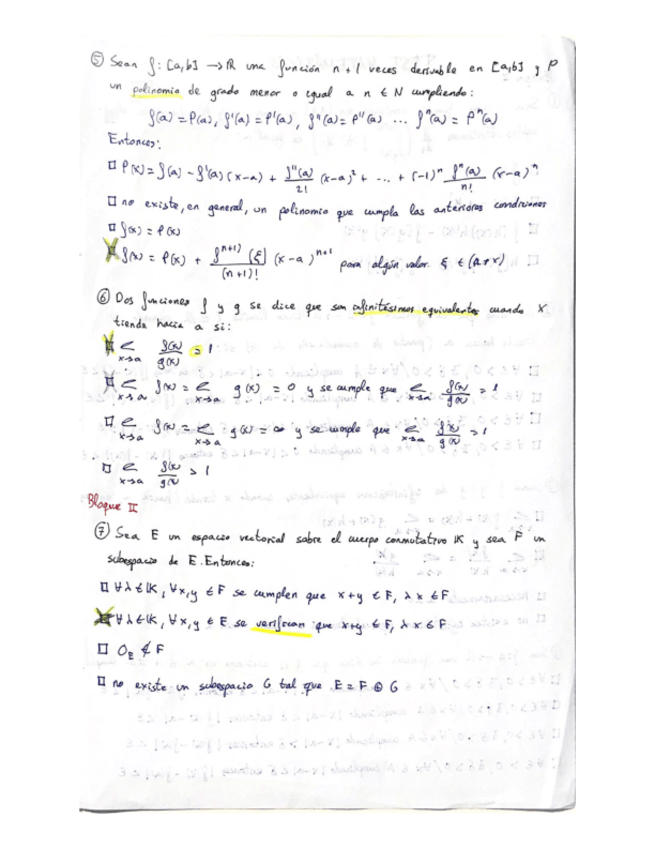 ⑤ Sean f: [a,b] → ℝ una función n+1 veces derivable en [a,b] y P
un polinomio de grado menor o igual a n ∈ N cumpliendo:
f(a) = P(a), f'(a) = P'(a), f''(a) = P''(a) ... fⁿ(a) = Pⁿ(a)
Entonces:
□ P(x) = f(a) - f'(a)(x-a) + f''(a)/2! (x-a)² + ... + (-1)ⁿ fⁿ(a)/n! (x-a)ⁿ
□ no existe, en general, un polinomio que cumpla las anteriores condiciones
□ f(x) = P(x)
☒ f(x) = P(x) + fⁿ⁺¹⁾(ξ)/(n+1)! (x-a)ⁿ⁺¹ para algún valor ξ ∈ (a,x)
⑥ Dos funciones f y g se dice que son infinitésimos equivalentes cuando x
tienda hacia a si:
☒ ℒ x→a f(x)/g(x) = 1
□ ℒ x→a f(x) = ℒ x→a g(x) = 0 y se cumple que ℒ x→a f(x)/g(x) = 1
□ ℒ x→a f(x) = ℒ x→a g(x) = ∞ y se cumple que ℒ x→a f(x)/g(x) = 1
□ ℒ x→a f(x)/g(x) > 1
Bloque II
⑦ Sea E un espacio vectorial sobre el cuerpo conmutativo 𝕂 y sea F un
subespacio de E. Entonces:
□ ∀λ∈𝕂, ∀x,y ∈ F se cumplen que x+y ∈ F, λx ∈ F
☒ ∀λ∈𝕂, ∀x,y ∈ E se verifican que x+y ∈ F, λx ∈ F
□ O_E ∉ F
□ no existe un subespacio G tal que E = F ⊕ G